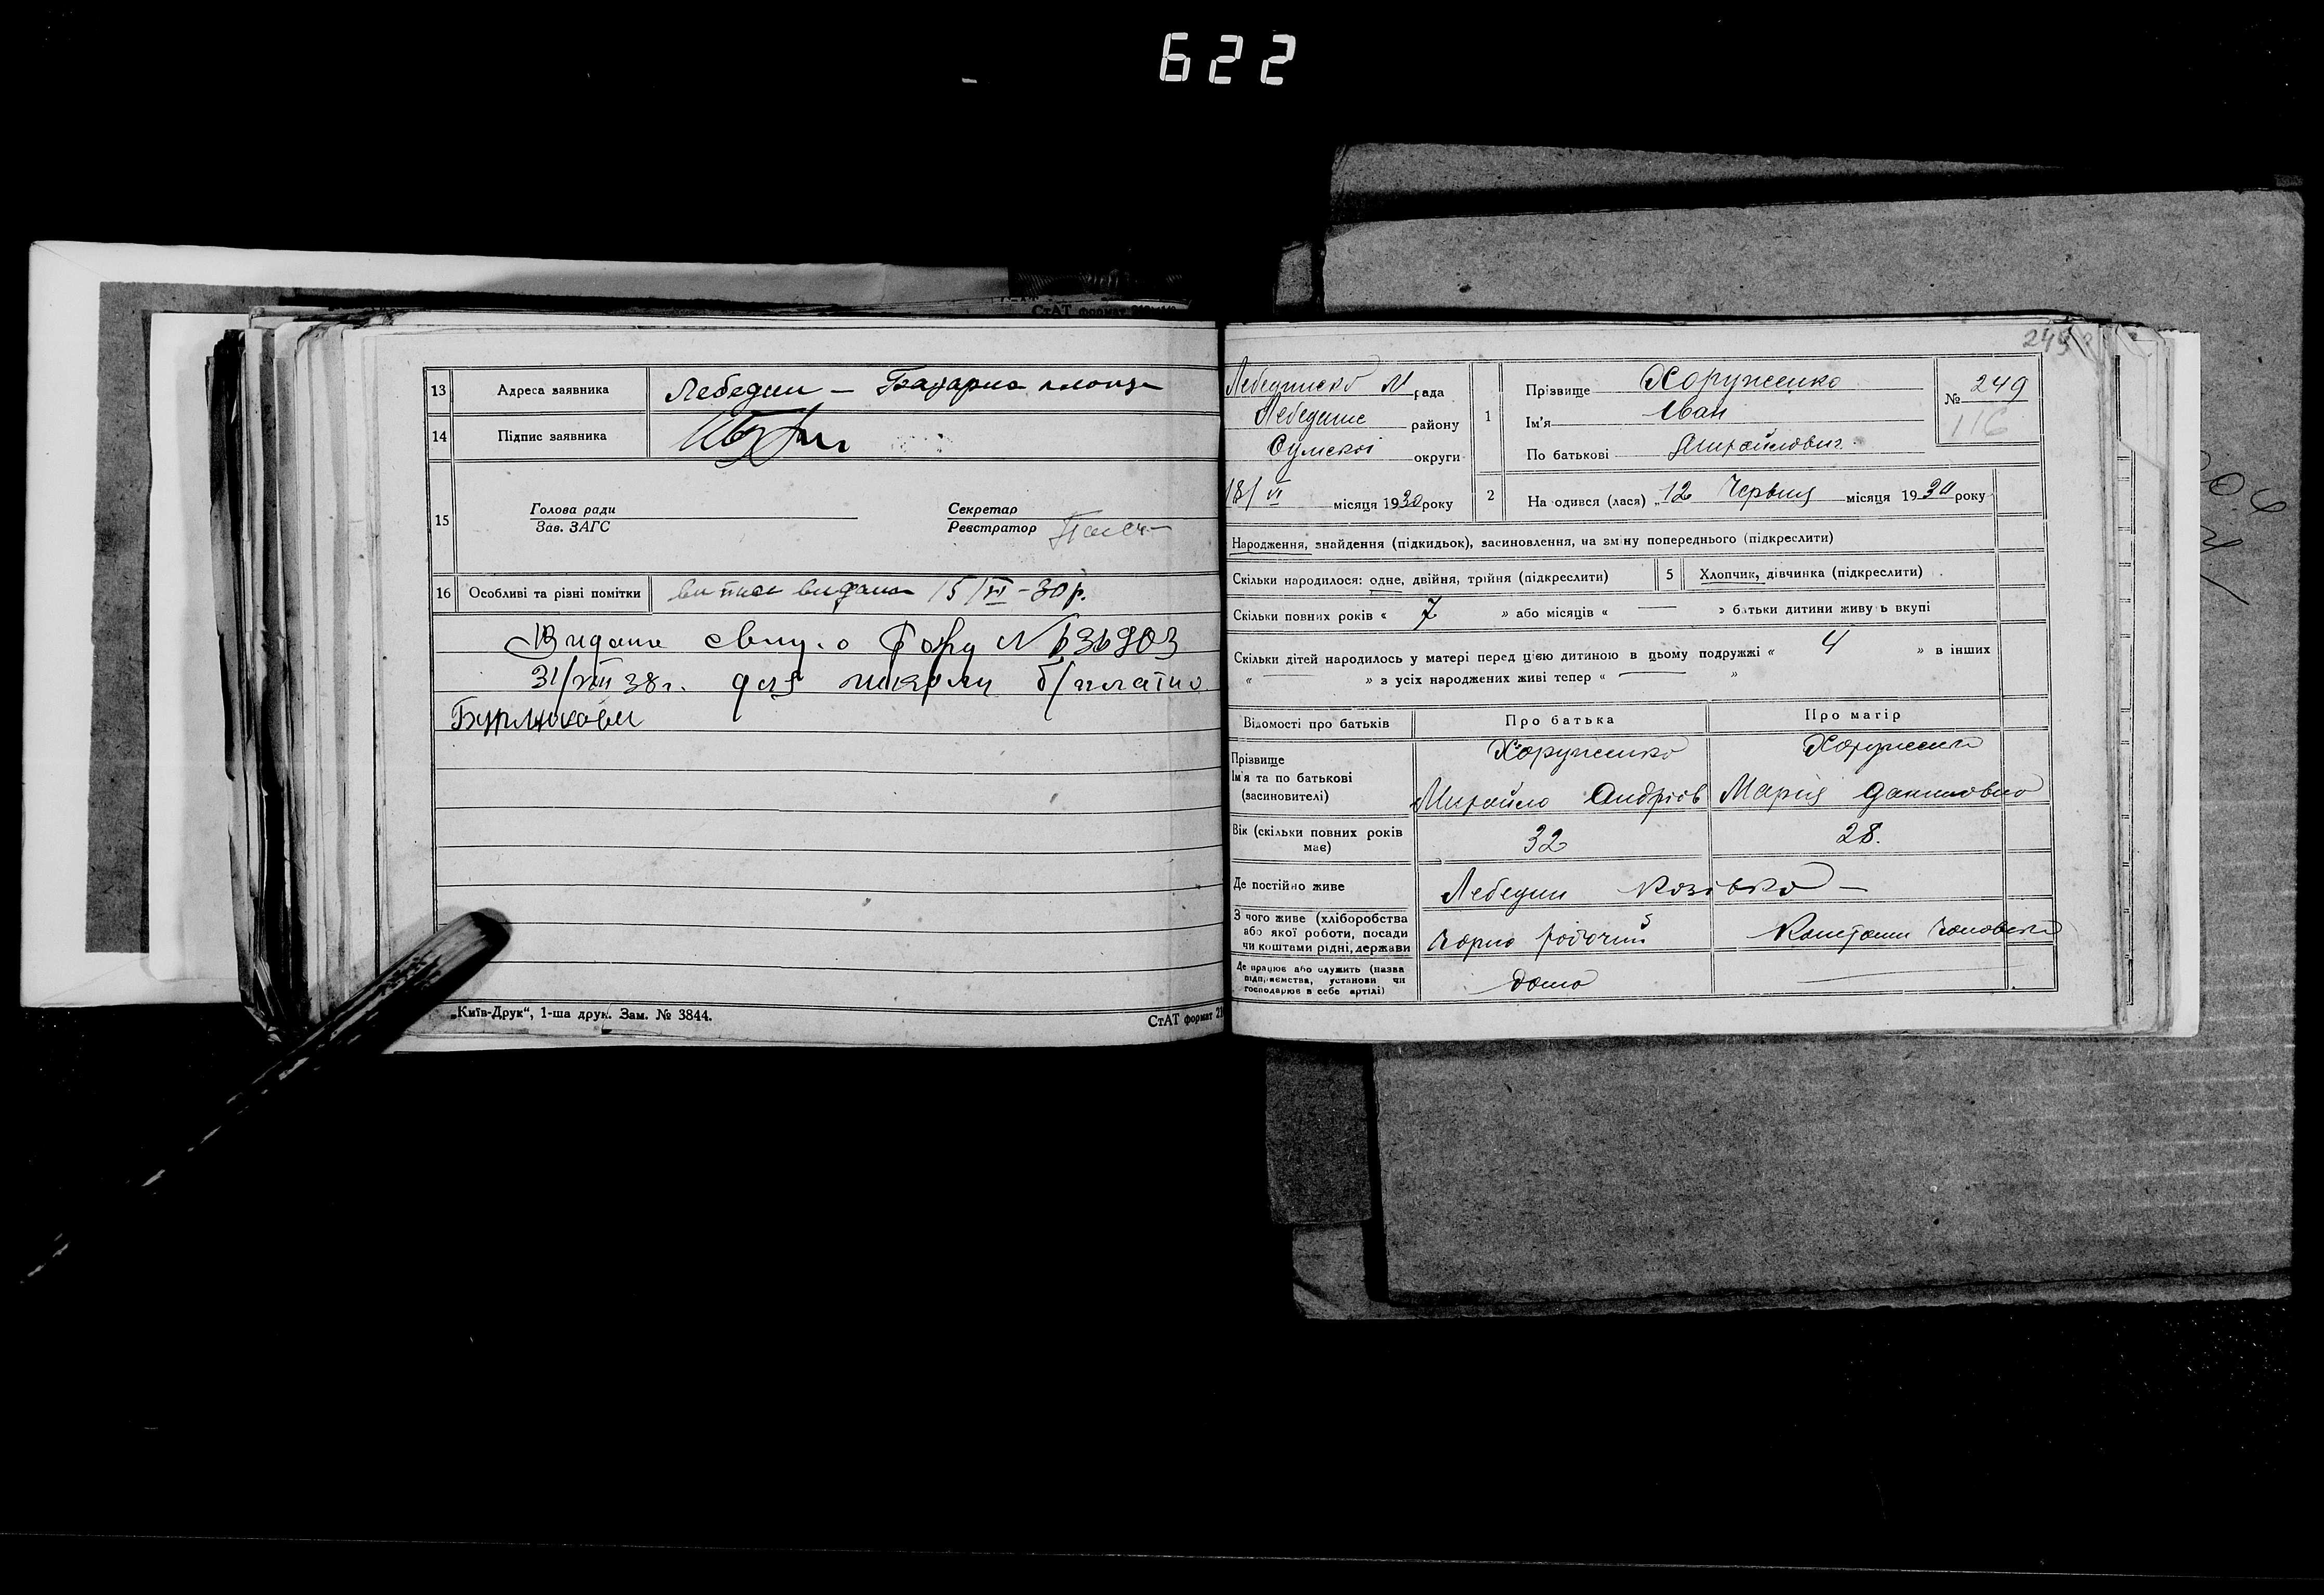 622
СтАТ формат
13 Адреса заявника Лебедин — Базарна площа
14 Підпис заявника
15 Голова ради
Зав. ЗАГС
Секретар
Реєстратор
16 Особливі та різні помітки виписа видана 15/VI-30 р.
Видане свид. о Рожд N 636903
31/VIII 38 г. для школи б/платно
„Київ-Друк“, 1-ша друк. Зам. № 3844.
СтАТ формат
249
Лебединсько М рада
Лебединс району
Сумської округи
18/VI місяця 1930 року
1 Прізвище Хоруженко
Ім'я Іван
По батькові Михайлович
№ 249
116
2 На одився (лася) „12 Червня місяця 1930 року
Народження, знайдення (підкидьок), засиновлення, на зміну попереднього (підкреслити)
Скільки народилося: одне, двійня, трійня (підкреслити) 5 Хлопчик, дівчинка (підкреслити)
Скільки повних років « 7 » або місяців « — » батьки дитини живуть вкупі
Скільки дітей народилось у матері перед цією дитиною в цьому подружжі « 4 » в інших
« — » з усіх народжених живі тепер « — »
Відомості про батьків Про батька Про матір
Прізвище Хоруженко Хоруженко
Ім'я та по батькові Михайло Андріов Мария Даниловно
(засиновителі)
Вік (скільки повних років має) 32 28.
Де постійно живе Лебедин Козівка —
З чого живе (хліборобства або якої роботи, посади чи коштами рідні, держави Чорно робочий Коштами чоловіка
Де працює або служить (назва підприємства, установи чи господарює в себе артілі) дома —